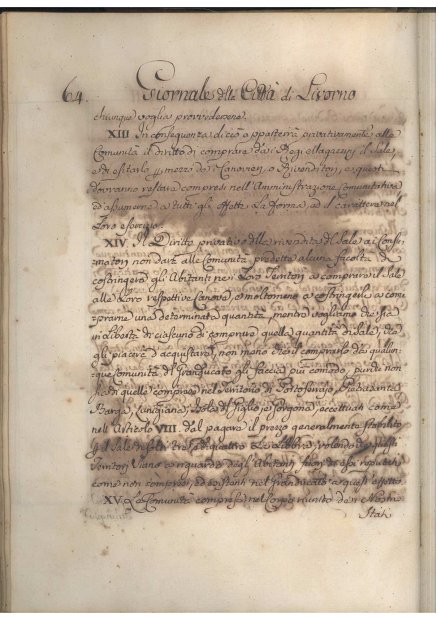 64. Giornale della Città di Livorno
chiunque voglia provvedersene.
XIII In conseguenza di ciò apparterrà privativamente alle
Comunità il diritto di comprare dai Regi Magazzini il Sale,
e di esitarlo per mezzo di Canovieri, o Rivenditori, e questi
dovranno restare compresi nell'Amministrazione Comunitativa
ed assumerne a tutti gli effetti la forma, ed il carattere nel
Loro esercizio.
XIV. Il Diritto privativo della rivendita di Sale ai Consu-
matori non darà alle Comunità predette alcuna facoltà di
costringere gli Abitanti nei Loro Territori a comprare il Sale
alle Loro respettive Canove, o molto meno a costringerli a com
prarne una determinata quantità, mentre vogliamo che sia
in libertà di ciascuno di comprare quella quantità di Sale, che
gli piacerà d'acquistare, non meno che di comprarlo da qualun-
que Comunità del Granducato gli faccia più comodo, purchè non
sia di quelle comprese nel Territorio di Portoferrajo, Pietrasanta
Barga, Lunigiana, Isole del Giglio, e Gorgona, eccettuati come
nell'Articolo VIII. dal pagare il prezzo generalmente stabilito
per il Sale di Soldi tre, e di quattro la Libbra, volendo che questi
Territori siano a riguardo degli Abitanti fuori di essi reputati
come non compresi, ed esistenti nel Granducato a quest'effetto.
XV. Le Comunità comprese nel corpo riunito dei Nostri
Stati